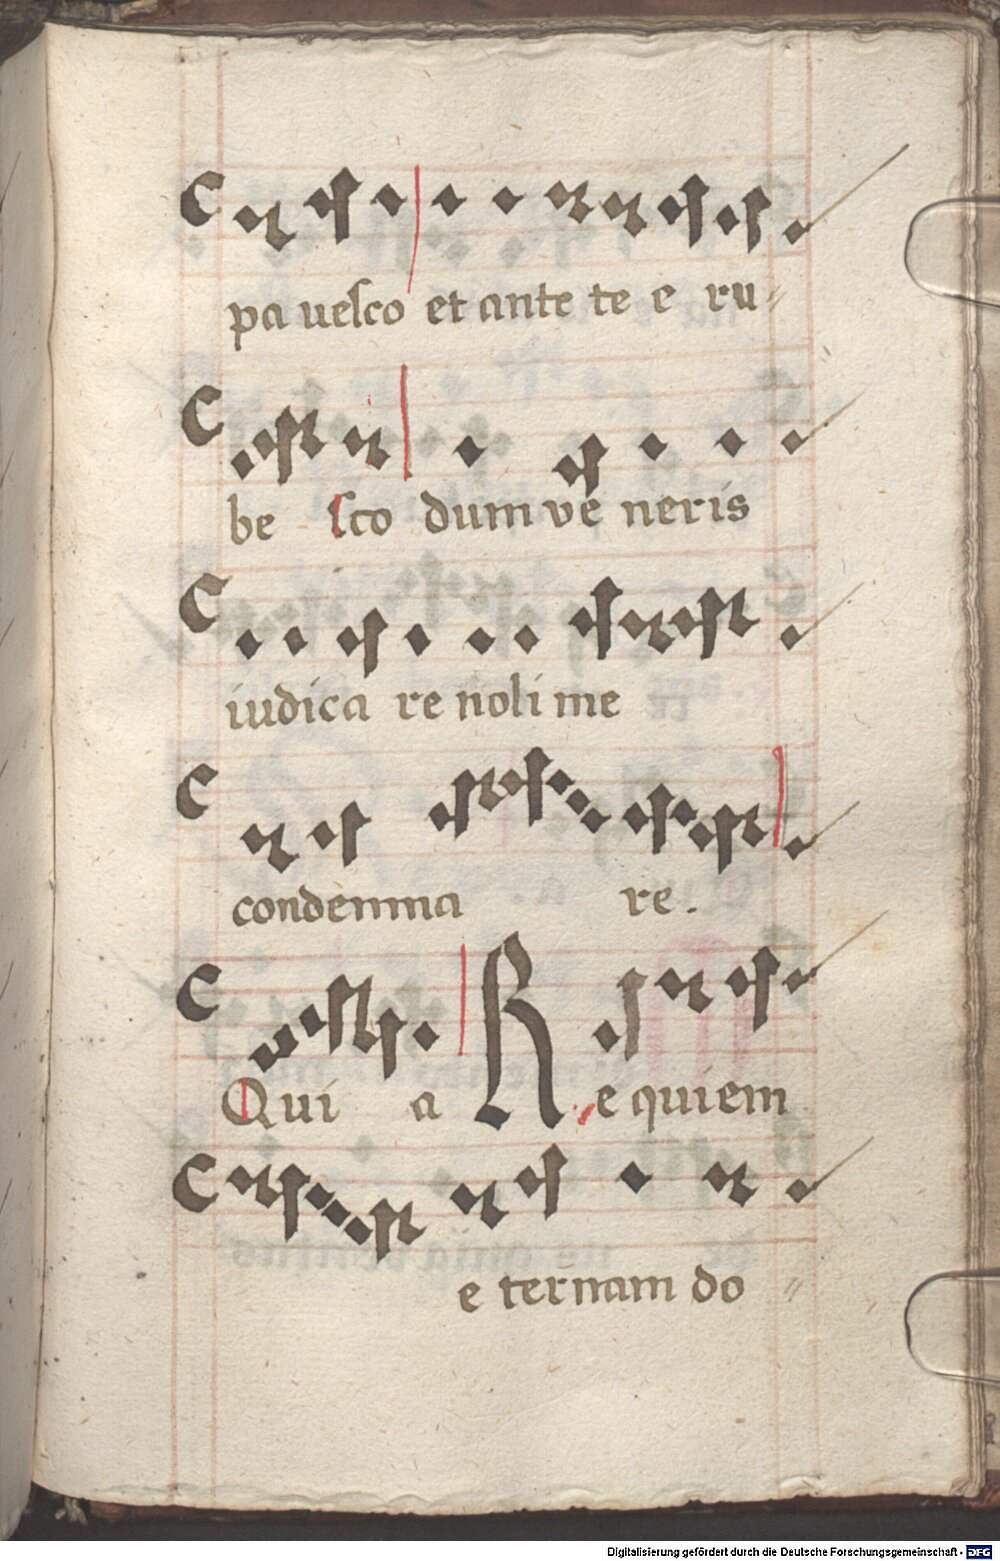 pa veſco et ante te e ru
be ſco dum ve neris
iudica re noli me
condemna re.
Qui a Requiem
e ternam do
Digitalisierung gefördert durch die Deutsche Forschungsgemeinschaft - DFG